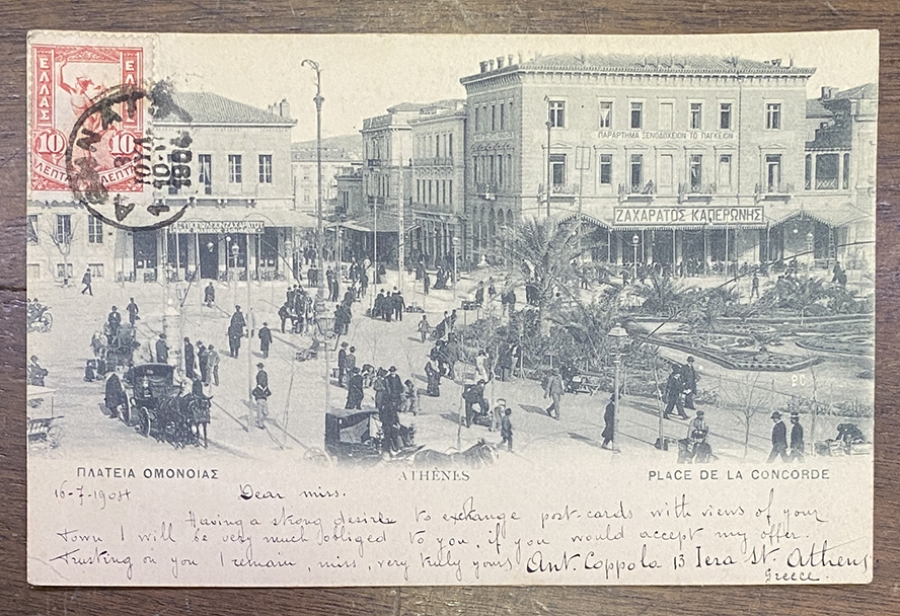 ΕΛΛΑΣ
ΕΛΛΑΣ
10 10
ΛΕΠΤΑ ΛΕΠΤΑ
1904
ΠΑΡΑΡΤΗΜΑ ΞΕΝΟΔΟΧΕΙΟΝ ΤΟ ΠΑΓΚΕΙΟΝ
ΖΑΧΑΡΑΤΟΣ ΚΑΠΕΡΩΝΗΣ
ΠΛΑΤΕΙΑ ΟΜΟΝΟΙΑΣ ATHÈNES PLACE DE LA CONCORDE
16-7-1904 Dear miss.
Having a strong desire to exchange post-cards with views of your
town I will be very much obliged to you, if you would accept my offer.
Trusting on you I remain, miss, very truly yours Ant. Coppola 13 Iera St. Athens
Greece.